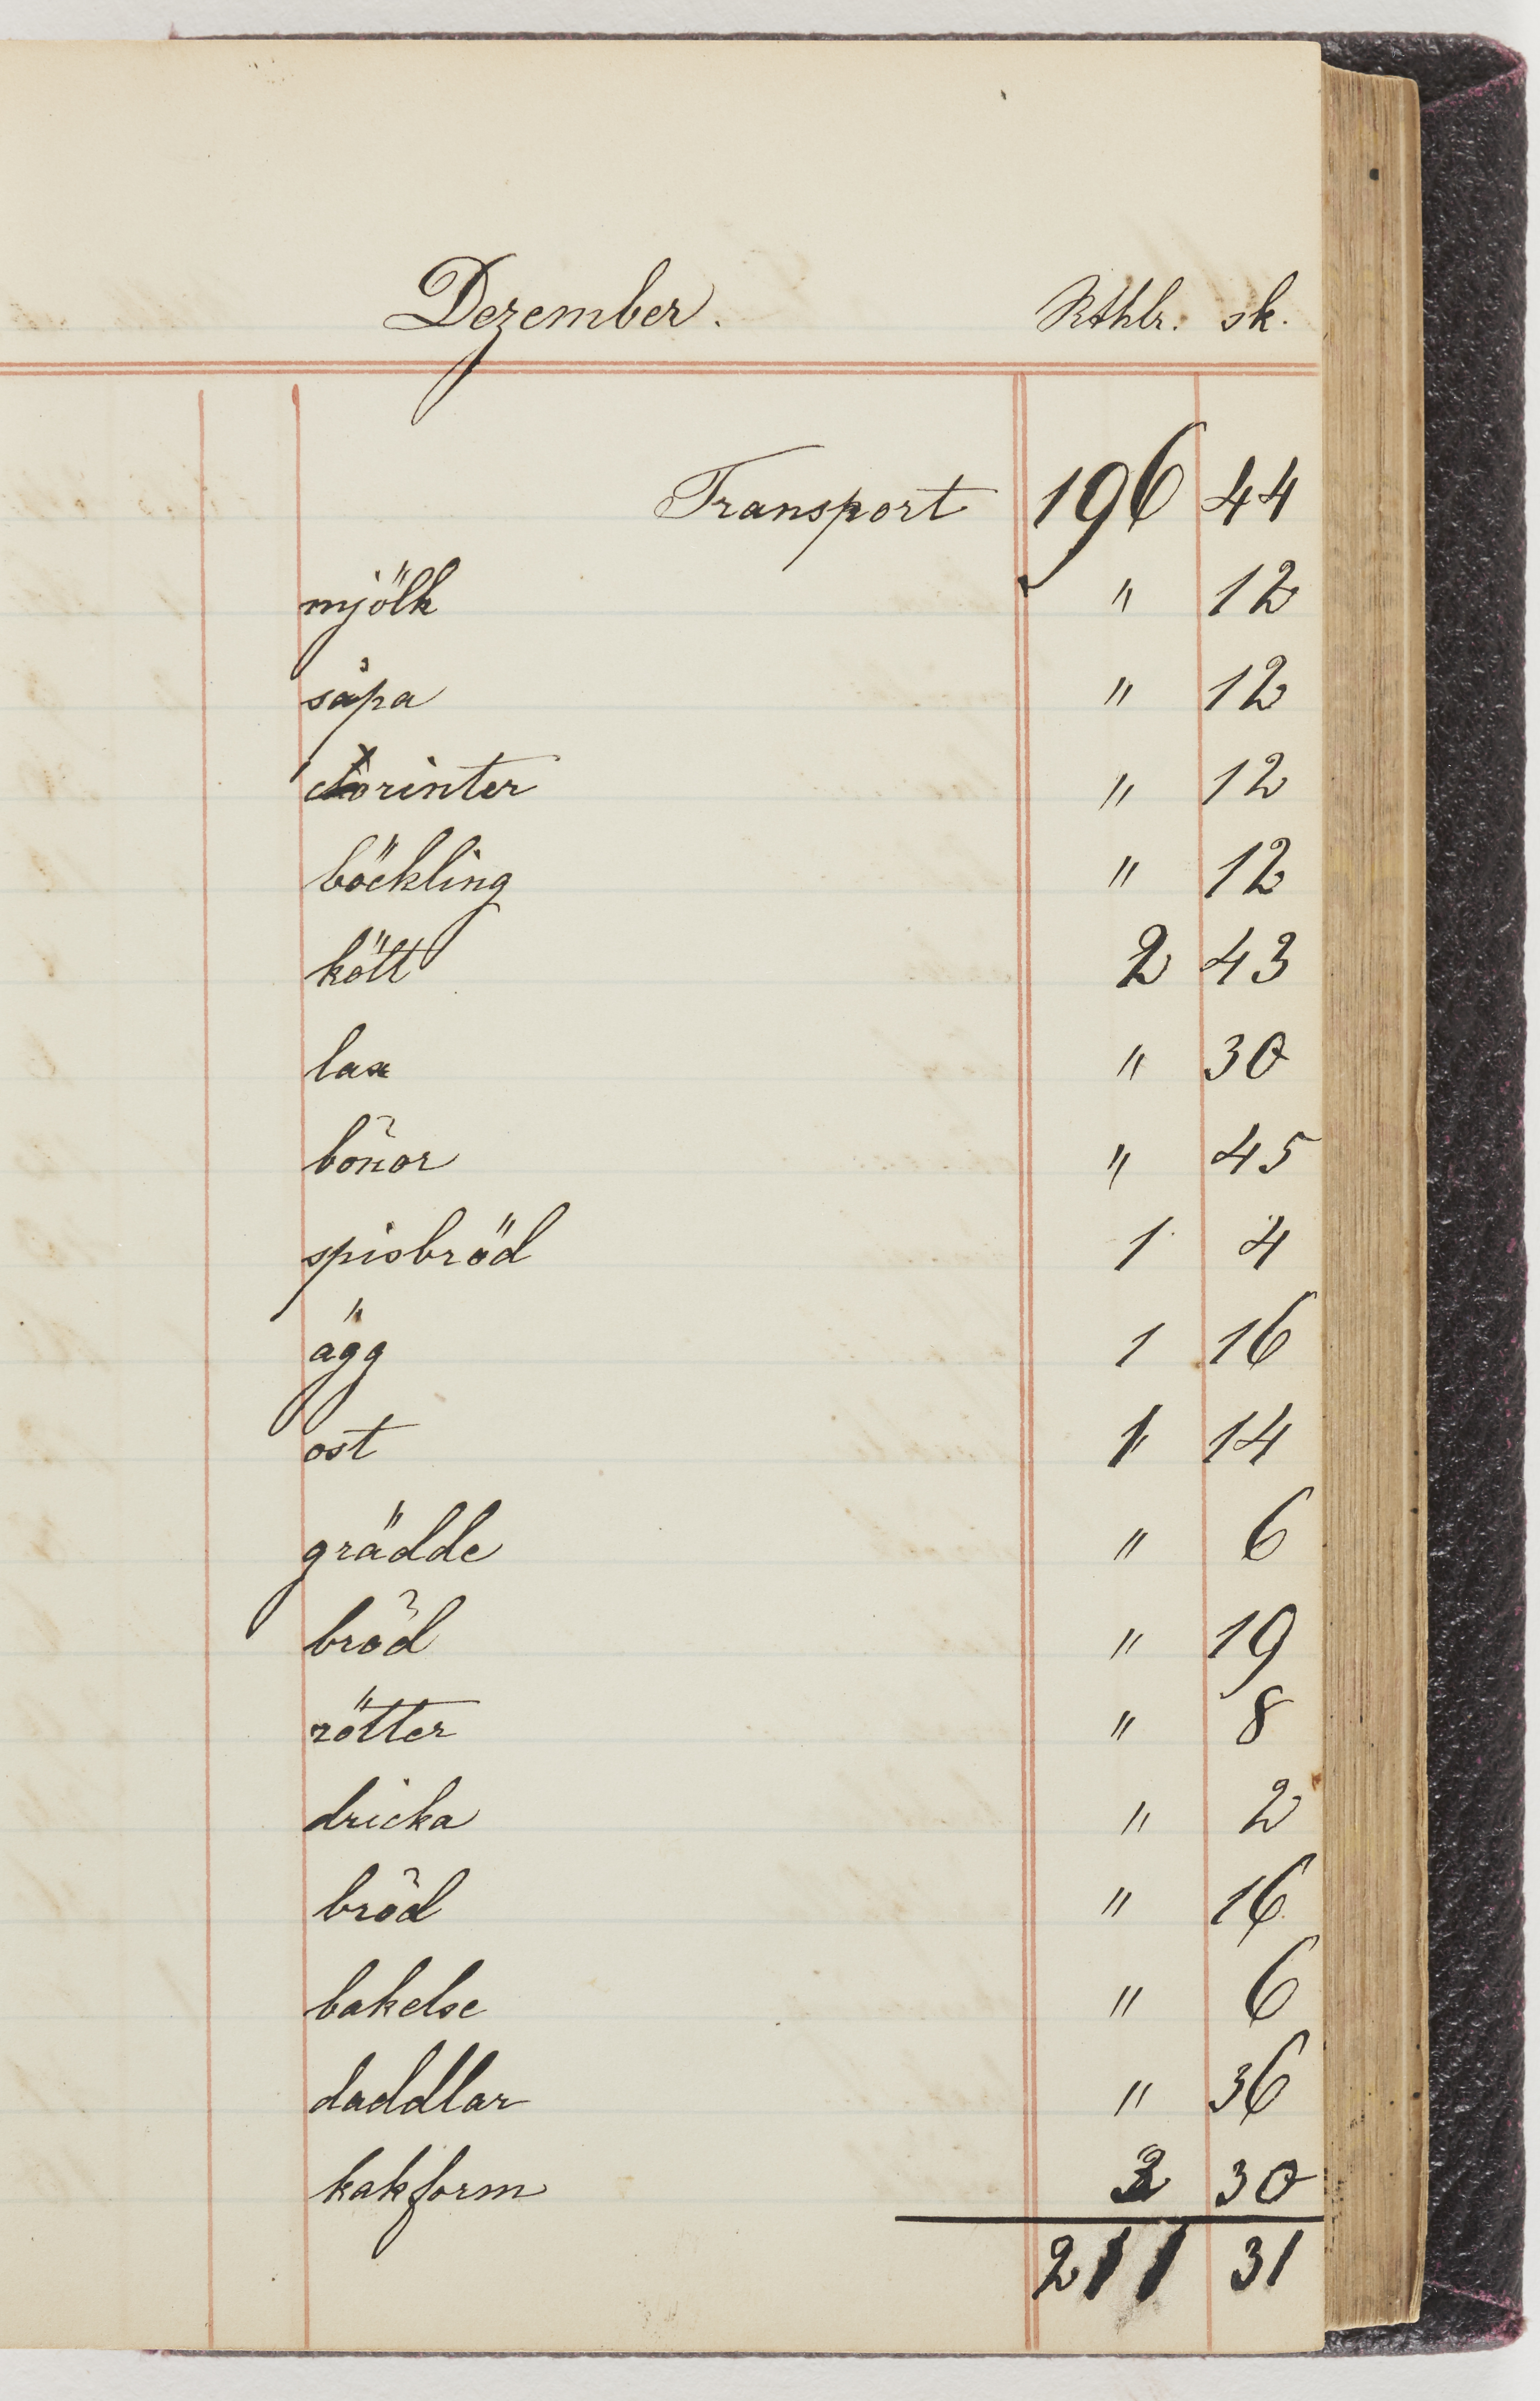 Dezember. Rthlr. sk.
Transport 196 44
mjölk " 12
såpa " 12
korinter " 12
böckling " 12
kött 2 43
lax " 30
bönor " 45
spisbröd 1 4
ägg 1 16
ost 1 14
grädde " 6
bröd " 19
rötter " 8
dricka " 2
bröd " 16
bakelse " 6
daddlar " 36
kakform 3 30
211 31